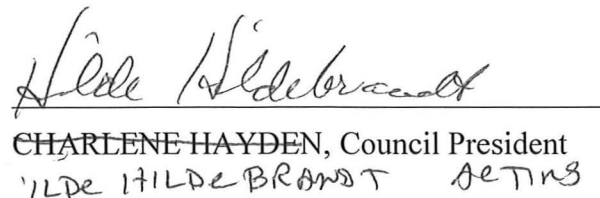 Hilde Hildebrandt
CHARLENE HAYDEN, Council President
HILDE HILDEBRANDT ACTING